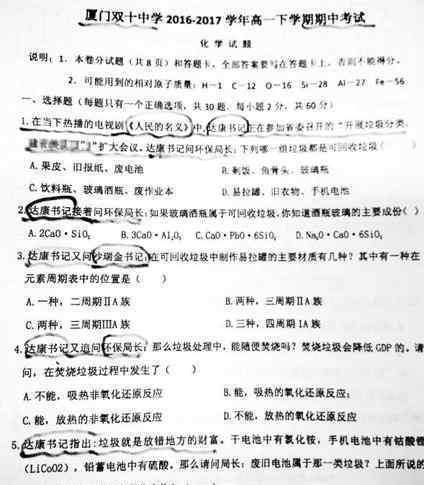 厦门双十中学2016-2017学年高一下学期期中考试
化学试题
说明：1．本卷分试题（共8页）和答题卡，全部答案要写在答题卡上，否则不能得分。
2．可能用到的相对原子质量：H—1 C—12 O—16 Si—28 Al—27 Fe—56
一、选择题（每题只有一个正确选项，共30题，每小题2分，共60分）
1.在当下热播的电视剧《人民的名义》中,达康书记正在参加省委召开的“开展垃圾分类,
扩大会议,达康书记问环保局长:下列哪一组垃圾都是可回收垃圾（ ）
A.果皮、旧报纸、废电池 B.剩饭、鱼骨头、玻璃瓶
C.饮料瓶、玻璃酒瓶、废作业本 D.易拉罐、旧衣物、手机电池
2.达康书记接着问环保局长:如果玻璃酒瓶属于可回收垃圾,你知道酒瓶玻璃的主要成份（ ）
A.2CaO·SiO₂ B.3CaO·Al₂O₃ C.CaO·PbO·6SiO₂ D.Na₂O·CaO·6SiO₂
3.达康书记又问沙瑞金书记,在可回收垃圾中制作易拉罐的主要材质有几种？其中有一种在
元素周期表中的位置是（ ）
A.一种，二周期ⅡA族 B.两种，三周期ⅡA族
C.两种，三周期ⅢA族 D.三种，四周期ⅠA族
4.达康书记又追问环保局长：那么垃圾处理中，能随便焚烧吗？焚烧垃圾会降低GDP的，请
问，在焚烧垃圾过程中发生了（ ）
A.不能，吸热非氧化还原反应 B.能，吸热的氧化还原反应;
C.能，放热的非氧化还原反应 D.不能，放热的氧化还原反应
5.达康书记指出:垃圾就是放错地方的财富。干电池中有氯化铵，手机电池中有钴酸锂
(LiCoO2)，铅蓄电池中有硫酸。那么请问局长：废旧电池属于那一类垃圾？上面所说的